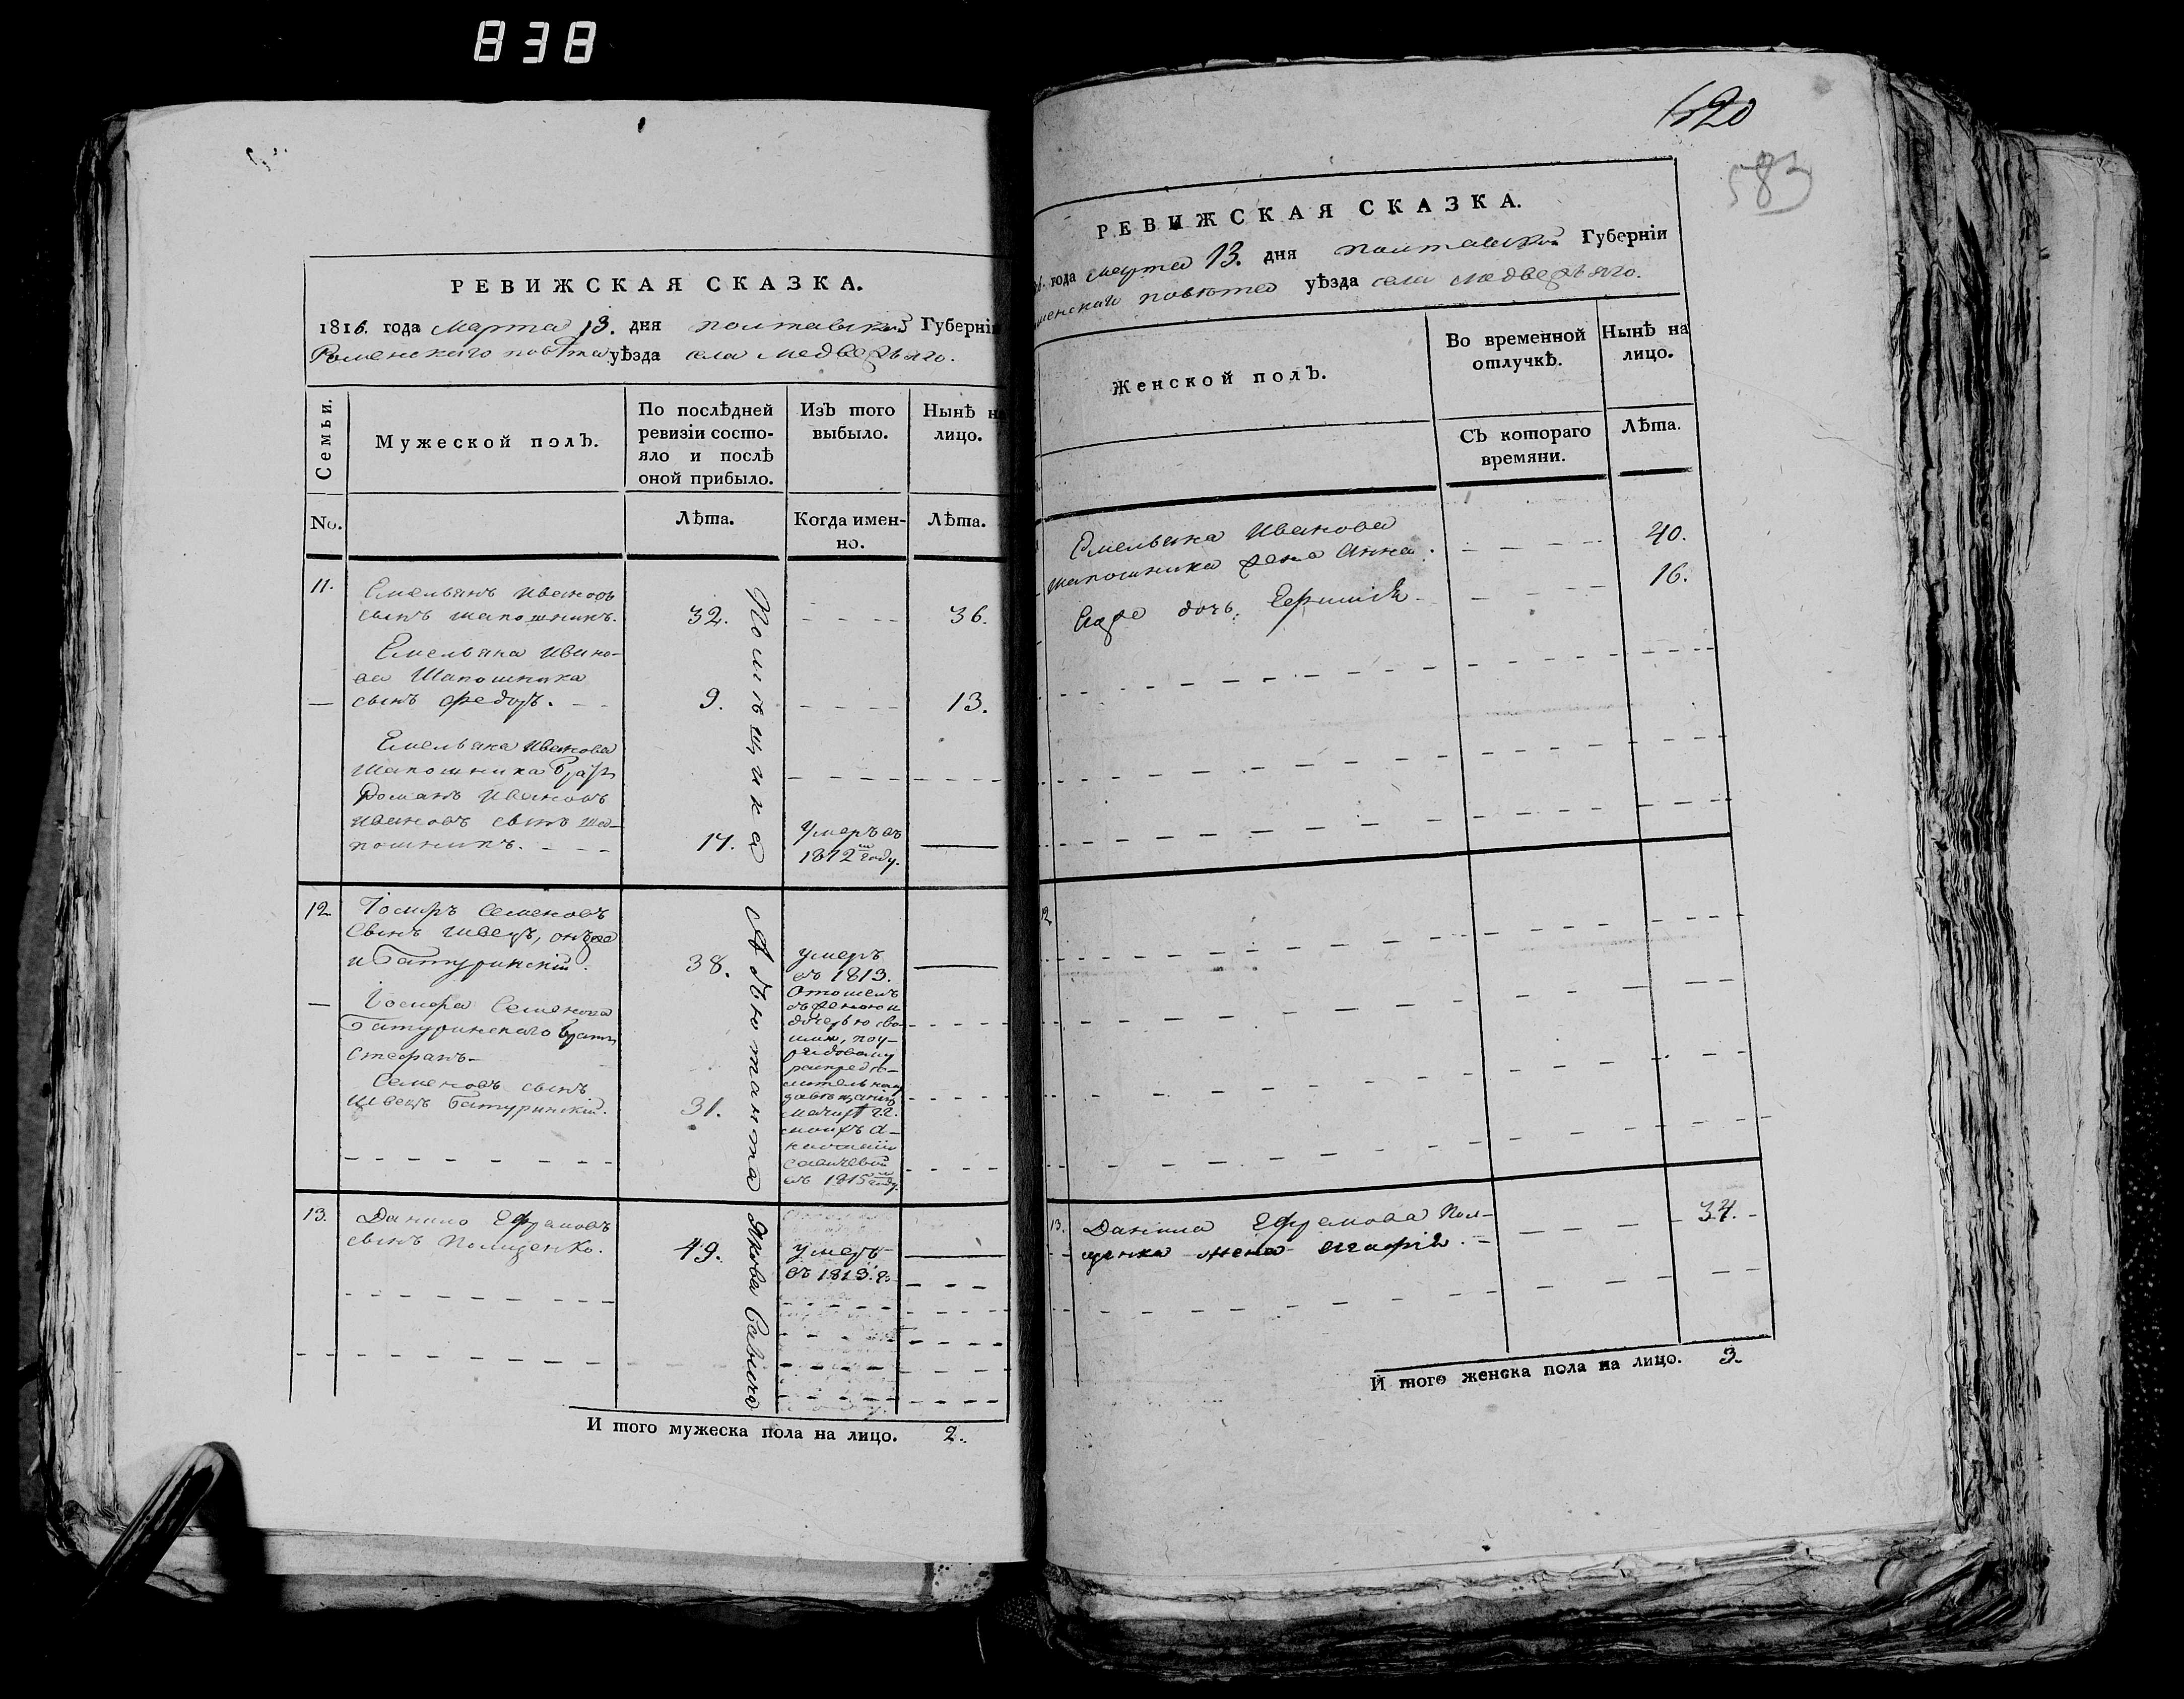 838
РЕВИЖСКАЯ СКАЗКА.
1816. года Марта 13. дня Полтавской Губерніи
Роменскаго повѣта уѣзда села Медвежяго.
Семьи.
Мужеской полъ.
По послѣдней
ревизіи состо-
яло и послѣ
оной прибыло.
Изъ того
выбыло.
Нынѣ на
лицо.
No.
Лѣта.
Когда имен-
но.
Лѣта.
Помѣщика Адъютанта Якова Савича
11. Емельянъ Ивановъ
сынъ шапошникъ. 32. 36.
Емельяна Ивано-
ва Шапошника
сынъ Федоръ. 9. 13.
Емельяна Иванова
шапошника братъ
Романъ Ивановъ
Ивановъ сынъ Ша-
пошникъ. 14. Умеръ въ
1812м году.
12. Іосифъ Семеновъ
сынъ швецъ, онже
и Батуринскій. 38. умеръ
въ 1813.
Іосифа Семенова
Батуринского братъ
Стефанъ
Семеновъ сынъ
Швецъ Батуринскій. 31.
Отошелъ
съ женою и
дочерью сво-
ими, по
въ 1815м году.
13. Данило Ефремовъ
сынъ Полщенко. 49. умеръ
въ 1813. г.
И того мужеска пола на лицо. 2.
620
583
РЕВИЖСКАЯ СКАЗКА.
года Марта 13. дня Полтавской Губерніи
повѣта уѣзда села Медвежяго.
Женской полъ.
Во временной
отлучкѣ.
Нынѣ на
лицо.
Съ котораго
времяни.
Лѣта.
Емельяна Иванова
шапошника жена Анна. 40.
Егоже дочь Ефимія 16.
12
13. Данила Ефремова Пол-
щенка жена Агафія. 34.
И того женска пола на лицо. 3.